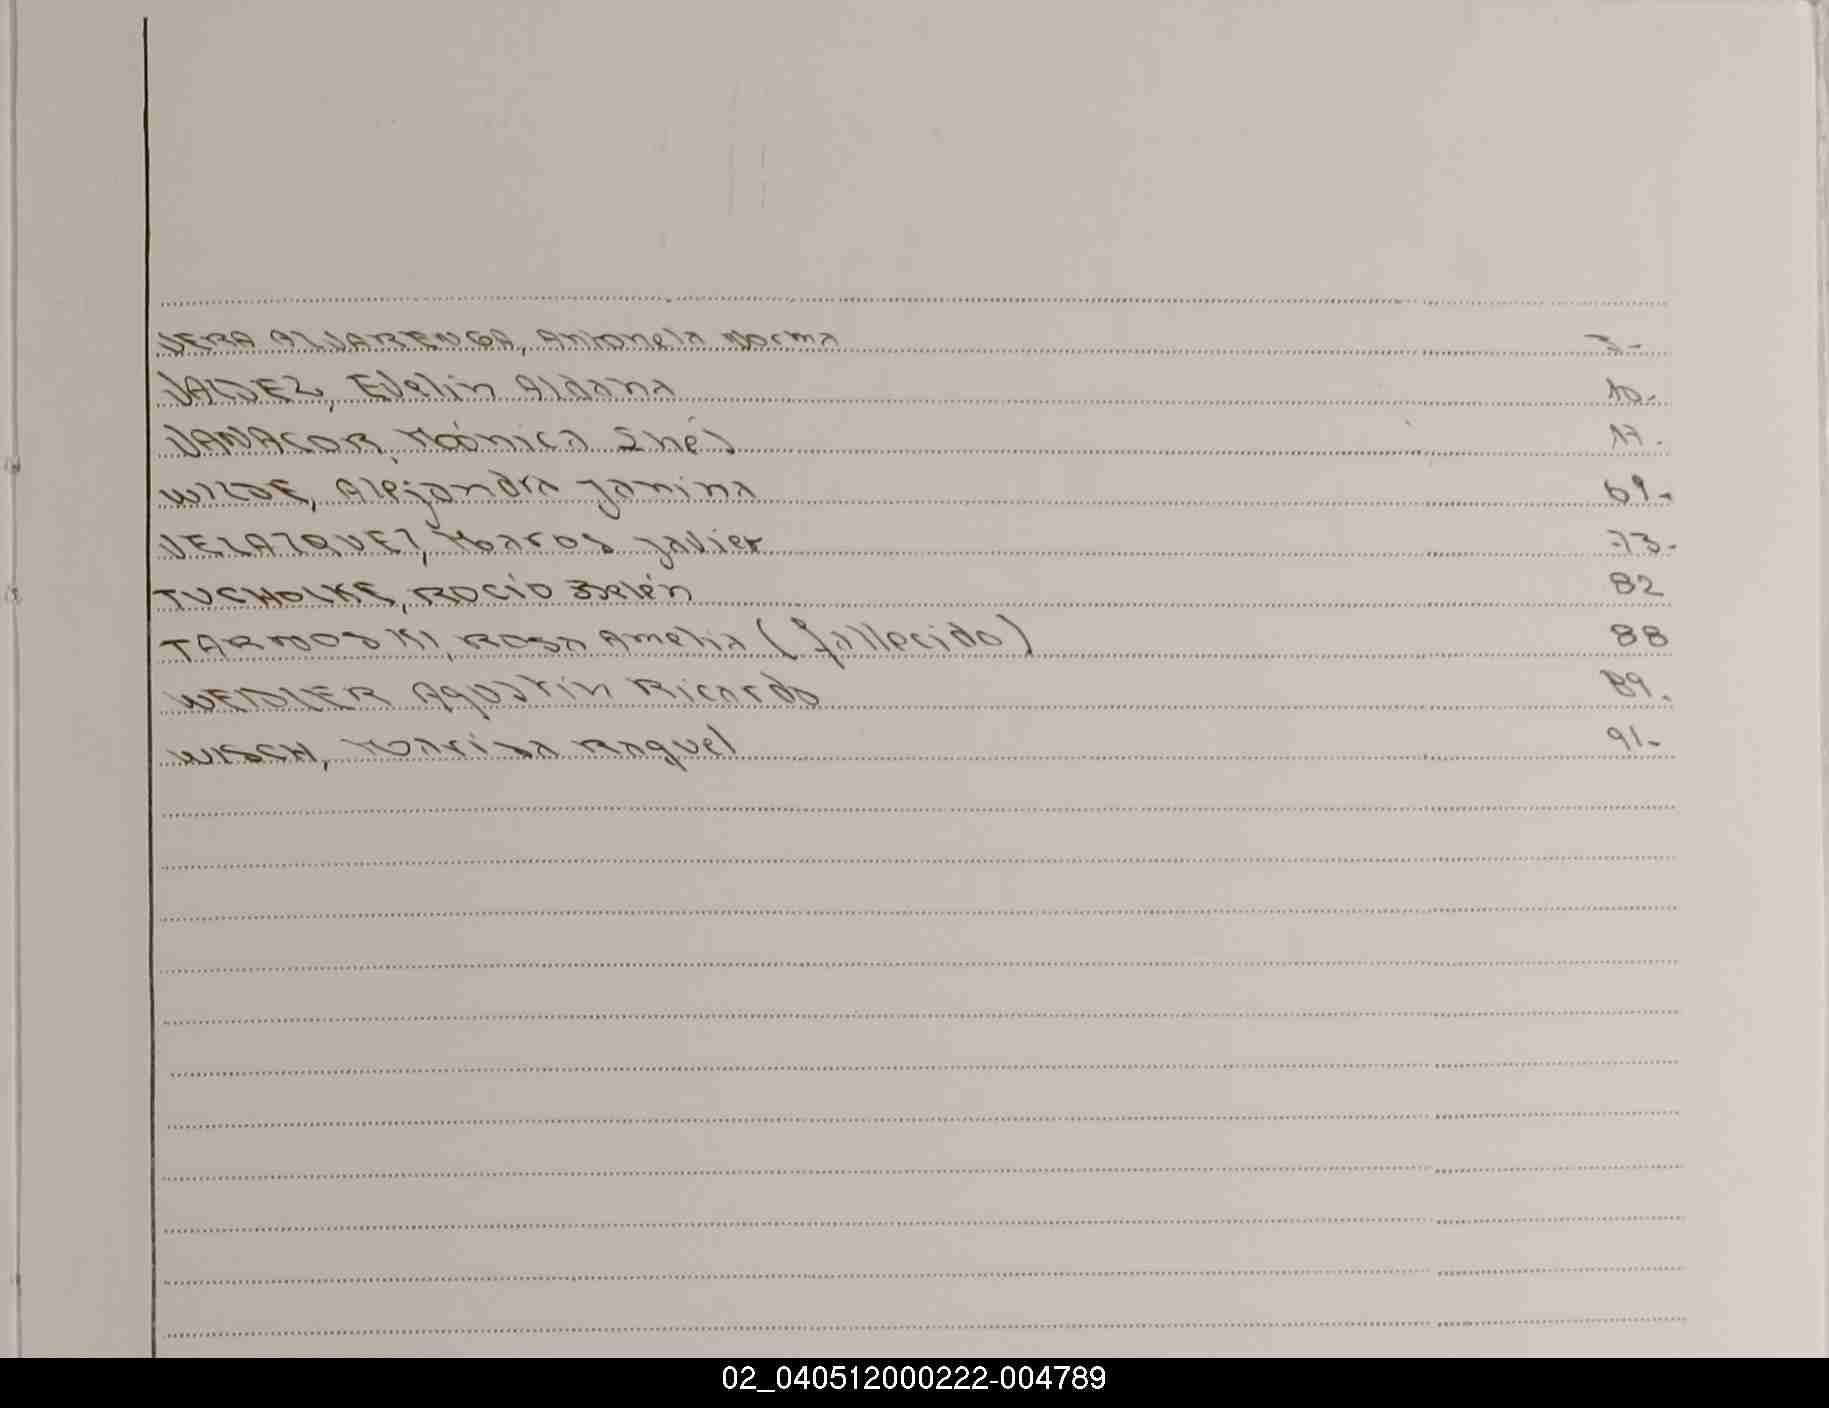 VERA ALVARENGA, Antonela Norma 7-
VALDEZ, Evelin Aldana 10.
VANACOR, Mónica Inés 17.
WILDE, Alejandra Janina 69.
VELAZQUEZ, Marcos Javier 73.
TUCHOLKE, Rocío Belén 82
TARNOSKI, Rosa Amelia (fallecido) 88
WEIDLER Agustín Ricardo 89.
WISCH, Marisa Raquel 91-
02_040512000222-004789